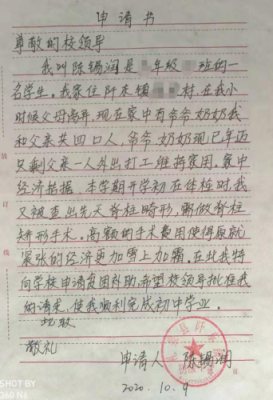 申请书
尊敬的校领导
我叫陈锡润是 年级 班的一
名学生。我家住阡東镇 村,在我小
时候父母离异,现在家中有爷爷奶奶我
和父亲共四口人,爷爷奶奶现已年迈
只剩父亲一人外出打工维持家用。家中
经济拮据,本学期开学初在体检时,我
又被查出先天脊柱畸形,需做脊柱
矫形手术。高额的手术费用使得原就
紧张的经济更加雪上加霜。在此我特
向学校申请贫困补助,希望校领导批准我
的请求,使我顺利完成初中学业。
此致
敬礼
申请人 陈锡润
2020.10.9
SHOT BY
360 ME